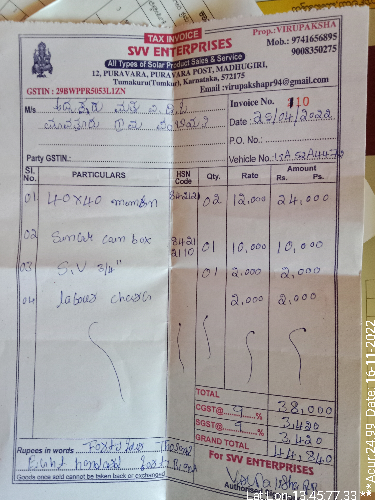 Prop.: VIRUPAKSHA
TAX INVOICE
Mob.: 9741656895
SVV ENTERPRISES
9008350275
All Types of Solar Product Sales & Service
12, PURAVARA, PURAVARA POST, MADHUGIRI,
Tumakuru(Tumkur), Karnataka, 572175
GSTIN : 29BWPPR5053L1ZN
Email :virupakshapr94@gmail.com
M/s
Invoice No. 110
Date : 28/04/2022
P.O. No.:
Party GSTIN.:
Vehicle No.:
Sl. No. PARTICULARS HSN Code Qty. Rate Amount Rs. Ps.
01 40x40 842121 02 12,000 24,000
02 Smart can box 8421 2110 01 10,000 10,000
03 S.V 3/4" 01 2,000 2,000
04 labour charge 2,000 2,000
TOTAL 38,000
CGST@ 9 % 3,420
SGST@ 9 % 3,420
GRAND TOTAL 44,840
Rupees in words Fourty four Thousand
Eight hundred fourty Rupees
For SVV ENTERPRISES
Goods once sold cannot be taken back or exchanged
Lat Lon-13.4577,33***Acur:24.99 Date: 16-11-2022